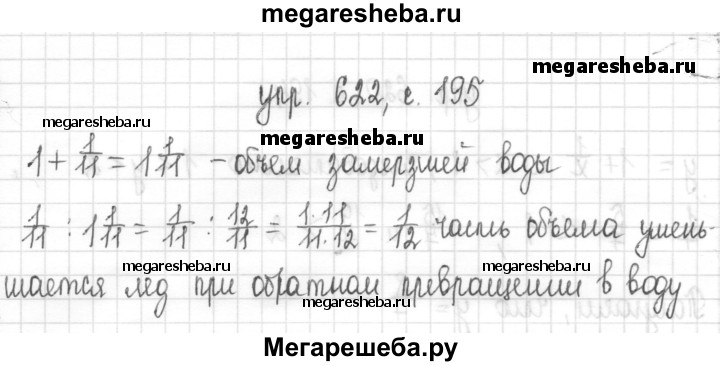 megaresheba.ru
megaresheba.ru
упр. 622, с. 195
megaresheba.ru
megaresheba.ru
1 + 1/11 = 1 1/11 - объем замерзшей воды
1/11 : 1 1/11 = 1/11 : 12/11 = 1·11/11·12 = 1/12 часть объема умень-
megaresheba.ru
megaresheba.ru
шается лед при обратном превращении в воду
megaresheba.ru
Мегарешеба.ру